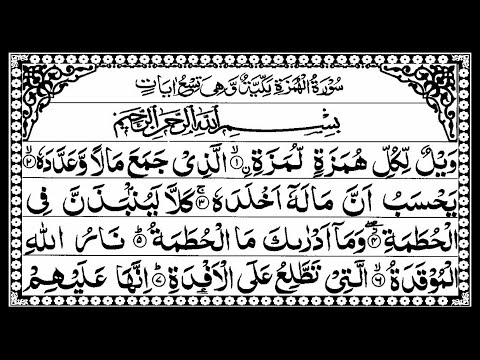 سُوْرَةُ الْهُمَزَةِ مَكِّيَّةٌ وَّهِيَ تِسْعُ اٰيَاتٍ
بِسْمِ اللّٰهِ الرَّحْمٰنِ الرَّحِيْمِ
وَيْلٌ لِّكُلِّ هُمَزَةٍ لُّمَزَةِ ۙ﴿۱﴾ اۨلَّذِىْ جَمَعَ مَالًا وَّعَدَّدَهٗ ۙ﴿۲﴾
يَحْسَبُ اَنَّ مَالَهٗۤ اَخْلَدَهٗ ۚ﴿۳﴾ كَلَّا لَيُنْۢبَذَنَّ فِى
الْحُطَمَةِ ۖ﴿۴﴾ وَمَاۤ اَدْرٰىكَ مَا الْحُطَمَةُ ؕ﴿۵﴾ نَارُ اللّٰهِ
الْمُوْقَدَةُ ۙ﴿۶﴾ الَّتِىْ تَطَّلِعُ عَلَى الْاَفْـِٕدَةِ ؕ﴿۷﴾ اِنَّهَا عَلَيْهِمْ